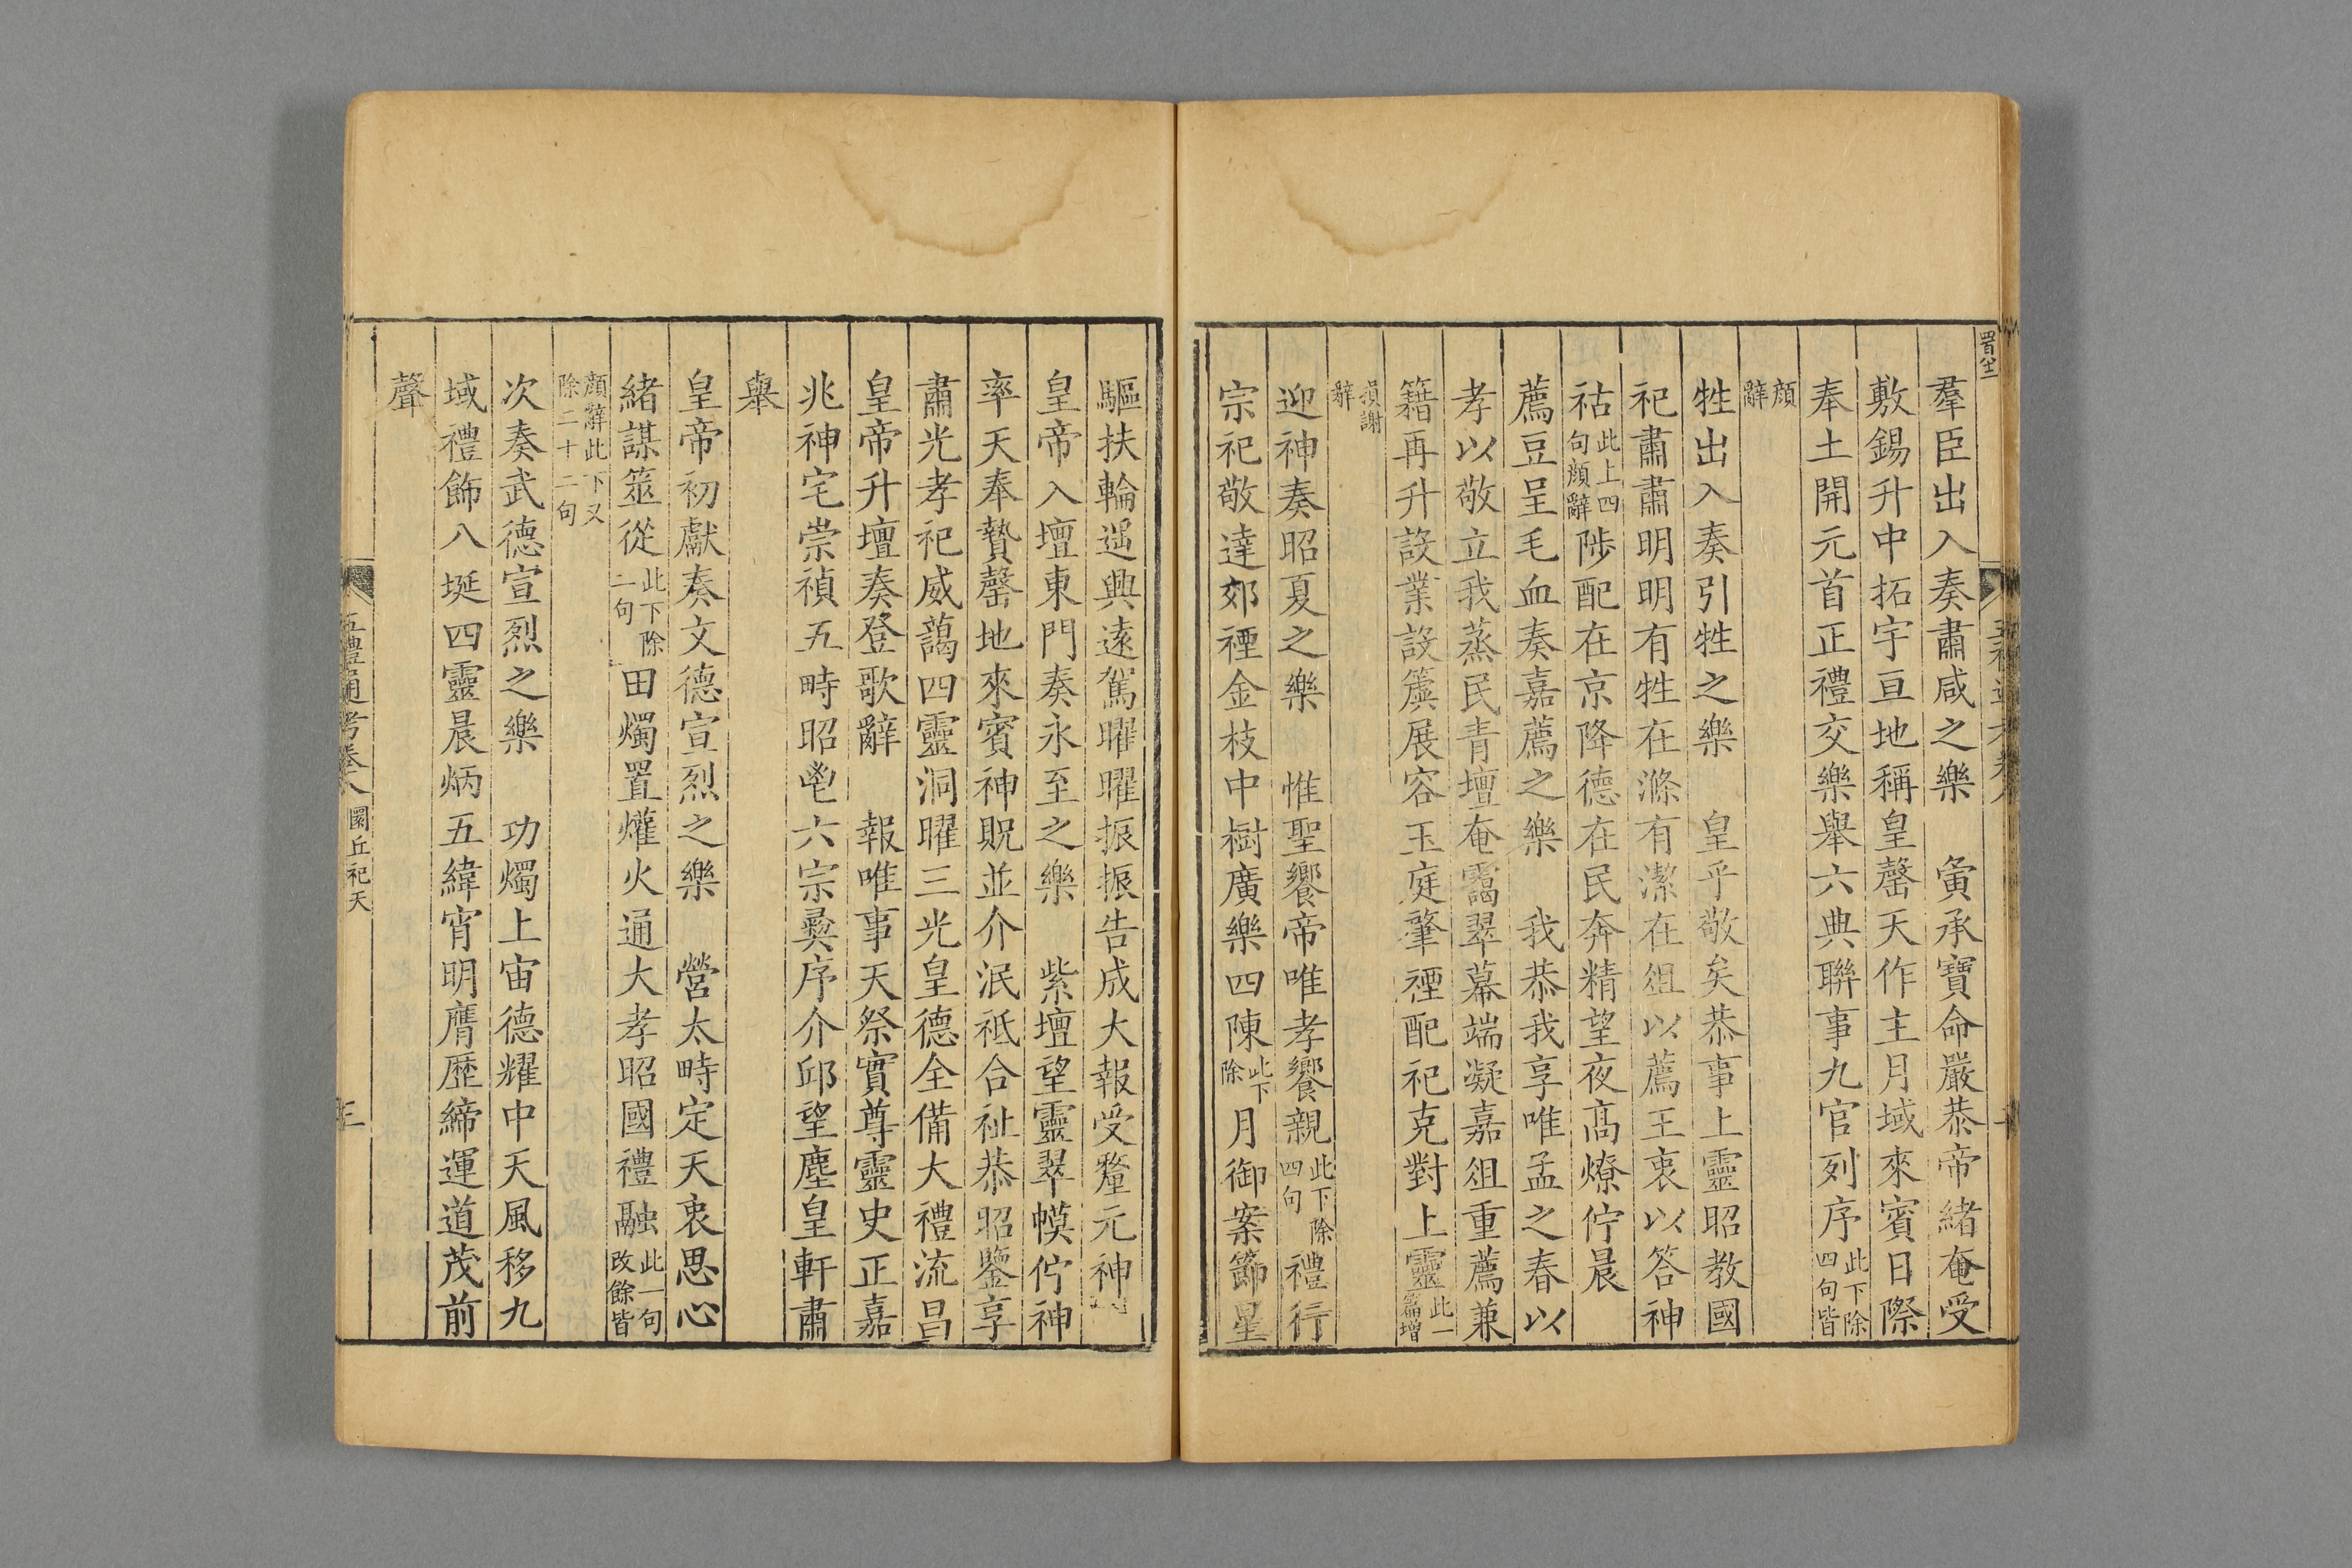 羣臣出入奏肅咸之樂　夤承寶命嚴恭帝緒奄受
敷錫升中拓宇亘地稱皇罄天作主月域來賓日際
奉土開元首正禮交樂舉六典聯事九官列序此下除四句皆
顔辭
牲出入奏引牲之樂　皇乎敬矣恭事上靈昭教國
祀肅肅明明有牲在滌有潔在俎以薦王衷以答神
祜此上四句顔辭陟配在京降德在民奔精望夜高燎佇晨
薦豆呈毛血奏嘉薦之樂　我恭我享唯孟之春以
孝以敬立我蒸民青壇奄靄翠幕端凝嘉俎重薦兼
籍再升設業設簴展容玉庭肇禋配祀克對上靈此一篇增
損謝辭
迎神奏昭夏之樂　惟聖饗帝唯孝饗親此下除四句禮行
宗祀敬達郊禋金枝中樹廣樂四陳此下除月御案節星
驅扶輪遥興遠駕曜曜振振告成大報受釐元神
皇帝入壇東門奏永至之樂　紫壇望靈翠幙佇神
率天奉贄罄地來賓神貺並介泯祗合祉恭昭鑒享
肅光孝祀威藹四靈洞曜三光皇德全備大禮流昌
皇帝升壇奏登歌辭　報唯事天祭實尊靈史正嘉
兆神宅崇禎五畤昭鬯六宗彞序介邱望塵皇軒肅
舉
皇帝初獻奏文德宣烈之樂　營太畤定天衷思心
緒謀筮從此下除二句田燭置爟火通大孝昭國禮融此一句改餘皆
顔辭此下又除二十二句
次奏武德宣烈之樂　功燭上宙德耀中天風移九
域禮飾八埏四靈晨炳五緯宵明膺歴締運道茂前
聲
五禮通考卷八　圜丘祀天　三